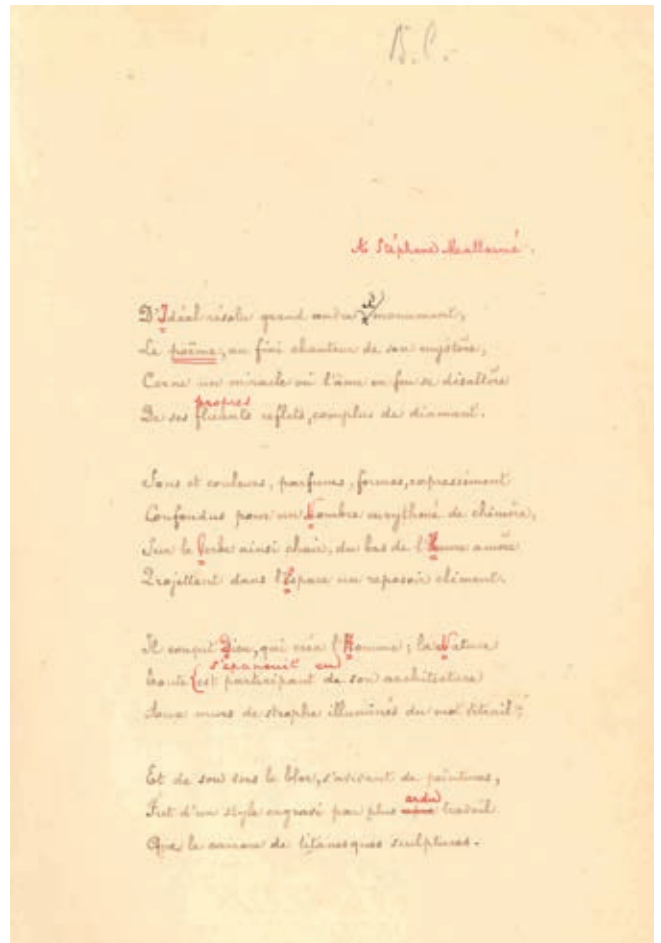 A Stéphane Mallarmé.
D'Idéal résolu grand ordre monument,
Le poème, au fini chanteur de son mystère,
Cerne un miracle où l'âme en feu se désaltère
propres
De ses reflets, complus de diamant.
Sons et couleurs, parfums, formes, expressément
Confondus pour un Nombre eurythmé de chimère,
Sur le Verbe ainsi chair, du bas de l'Heure amère
Projettent dans l'Espace un reposoir clément.
Il conçut Dieu, qui créa l'Homme; la Nature
s'épanouit en
Toute est participant de son architecture
Aux murs de strophe illuminés du mot vitrail;
Et de son sens le bloc, s'avivant de peintures,
Fret d'un style engrasé par plus
ardu
travail
Que le carrare de titanesques sculptures.